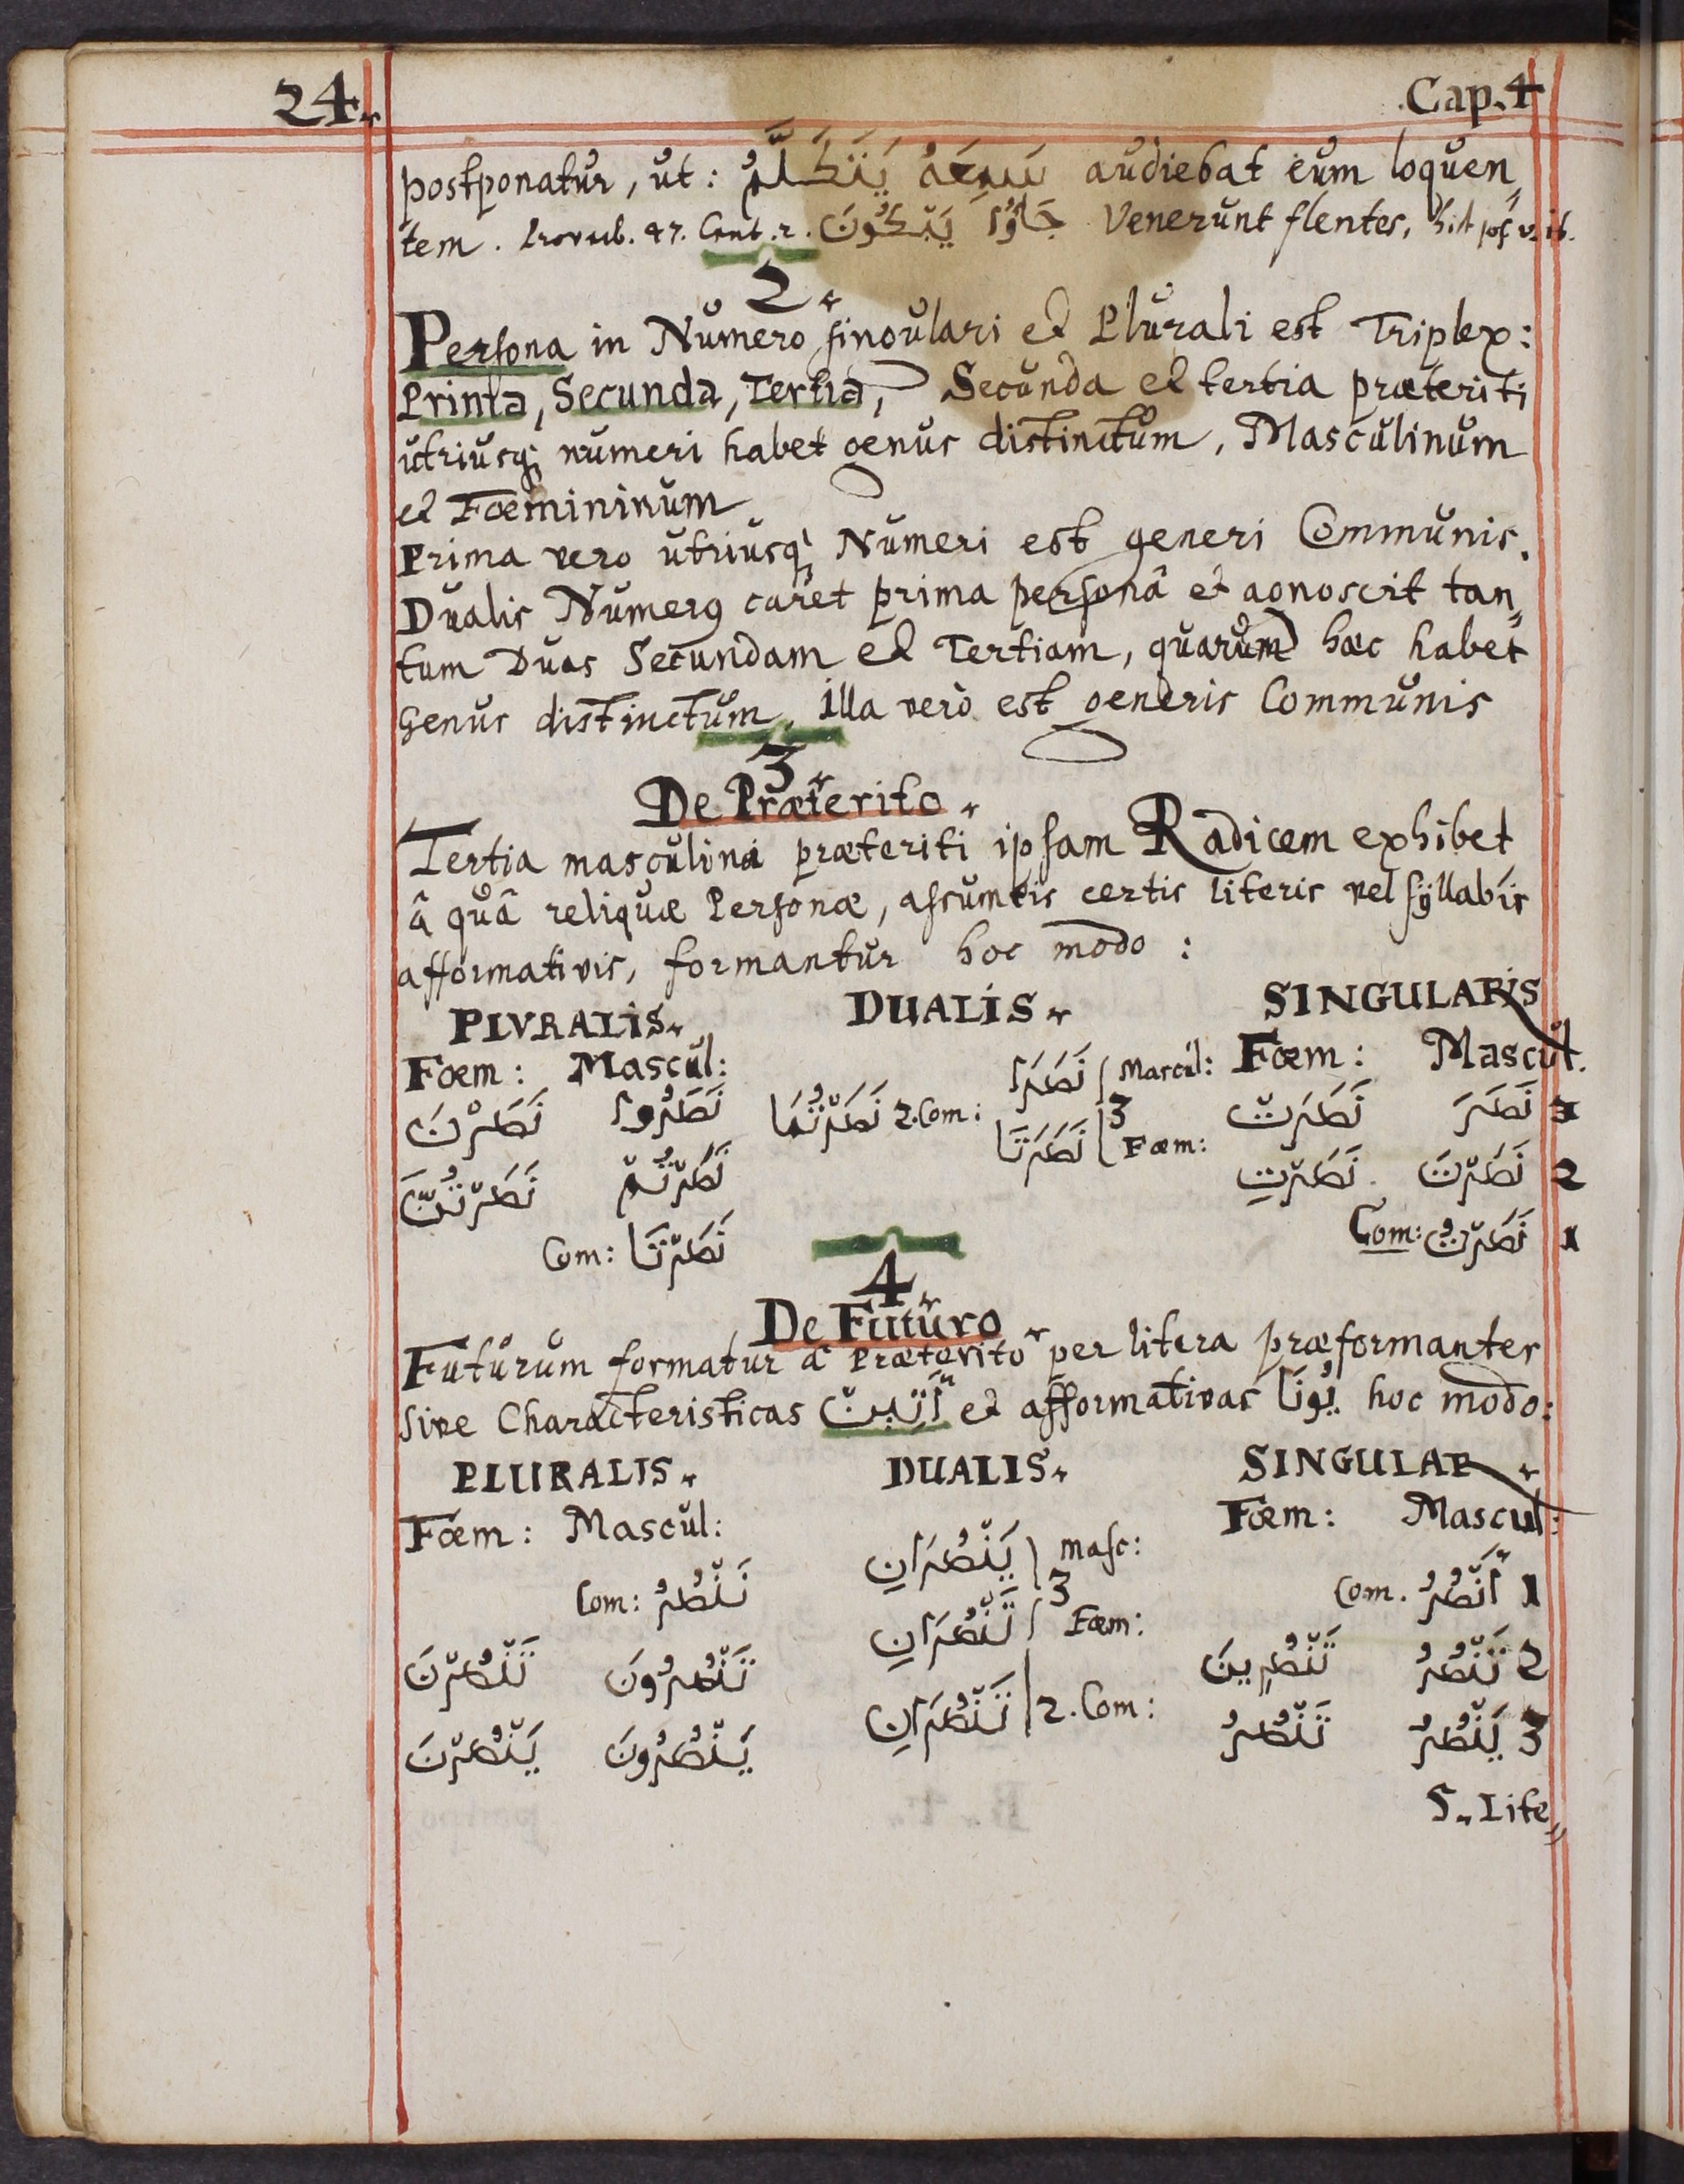 24.
Cap. 4
postponatur, ut: سَمِعَهُ يَتَكَلَّمُ audiebat eum loquen„
tem. Proverb. 47. Cent. 2. جَاؤُا يَبْكُونَ Venerunt flentes, hist jos v. 16.
2.
Persona in Numero singulari et Plurali est Triplex:
Prima, Secunda, Tertia, Secunda et tertia præteriti
utriusq; numeri habet genus distinctum, Masculinum
et Foemininum
Prima vero utriusq; Numeri est generi Communis.
Dualis Numerus caret prima personâ et agnoscit tan„
tum Duas Secundam et Tertiam, quarum hæc habet
Genus distinctum, illa verò est generis Communis
3.
De Præterito.
Tertia masculina præteriti ipsam Radicem exhibet
â quâ reliquæ Personæ, assumtis certis literis vel syllabis
afformativis, formantur hoc modo:
PLURALIS. DUALIS. SINGULARIS
Foem: Mascul: Foem: Mascul.
نَصَرْنَ نَصَرُوا نَصَرْتُمَا 2. Com: نَصَرَا Mascul: 3 نَصَرَتَا Foem: نَصَرَتْ نَصَرَ 3
نَصَرْتُنَّ نَصَرْتُمْ نَصَرْتِ نَصَرْتَ 2
Com: نَصَرْنَا Com: نَصَرْتُ 1
4.
De Futuro.
Futurum formatur â Præterito per litera præformanter
sive Characteristicas أَتَيْن et afformativas يُونَا hoc modo:
PLURALIS. DUALIS. SINGULAR.
Foem: Mascul: Foem: Mascul:
Com: نَنْصُرُ يَنْصُرَانِ masc: 3 Com. أَنْصُرُ 1
تَنْصُرْنَ تَنْصُرُونَ تَنْصُرَانِ Foem: تَنْصُرِينَ تَنْصُرُ 2
يَنْصُرْنَ يَنْصُرُونَ تَنْصُرَانِ 2. Com: تَنْصُرُ يَنْصُرُ 3
5. Lite„